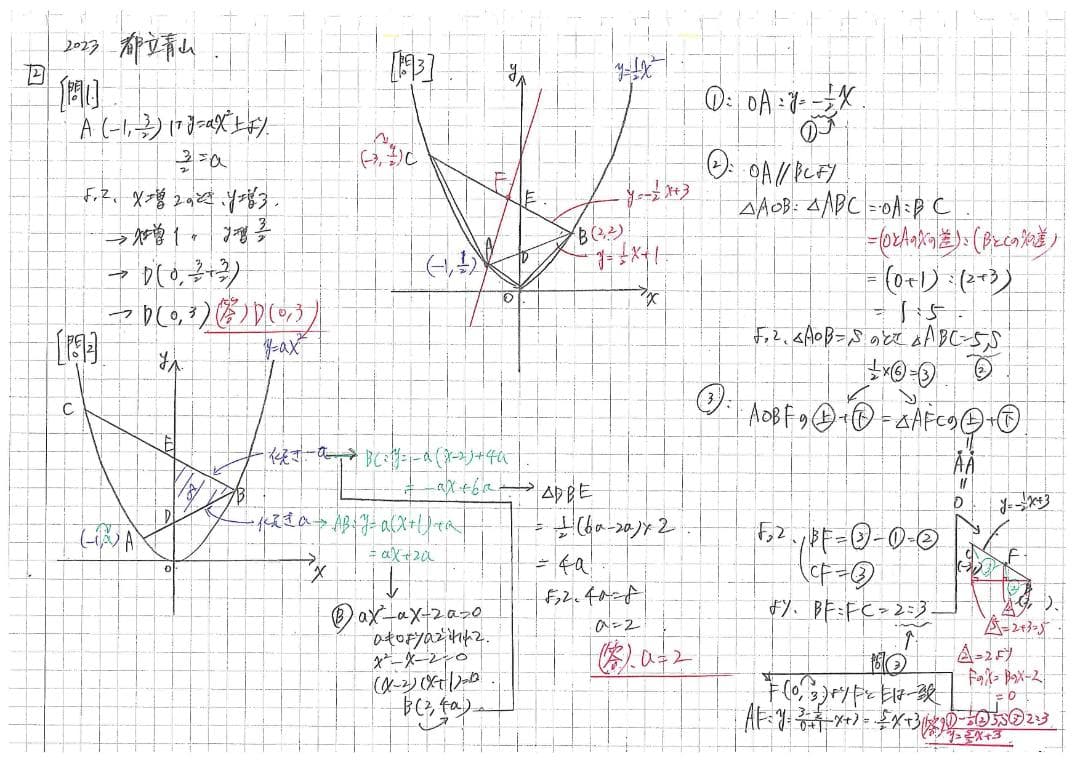 2023 都立青山
2
[問1]
A(-1, 3/2) は y=ax²上より
3/2=a
よって、x増2のとき、y増3
→ x増1 〃 y増3/2
→ D(0, 3/2+3/2)
→ D(0,3) (答) D(0,3)
[問2]
y=ax²
y
C
E
8
D
B
A
(-1, a)
O
x
傾き -a → BC: y=-a(x-2)+4a
= -ax+6a → △DBE
傾き a → AB: y=a(x+1)+a
= ax+2a
= 1/2(6a-2a)×2
= 4a
よって、4a=8
a=2
(答) a=2
B ax²-ax-2a=0
a≠0よりaでわって
x²-x-2=0
(x-2)(x+1)=0
B(2, 4a)
[問3]
y
y=1/2x²
(-3, 9/2) C
F
E
y=-1/2x+3
B(2,2)
A
D
y=1/2x+1
(-1, 1/2)
O
x
①: OA: y=-1/2x
①
②: OA//BCより
△AOB:△ABC=OA:BC
=(OとAのxの差):(BとCのxの差)
=(0+1):(2+3)
= 1:5
よって、△AOB=Sのとき △ABC=5S
②
1/2×⑥=③
③: AOBFの上+下=△AFCの上+下
AA
O
y=-1/2x+3
よって、BF=③-①=②
CF=③
より、BF:FC=2:3
C
F
B
5=2+3=5
2=2より
Fのx=Bのx-2
=0
問③
F(0, 3)よりFとEは一致
AF: y=(3-1/2)/(0+1)x+3=5/2x+3
(答) ①-1/2 ②5S ③2:3
y=5/2x+3